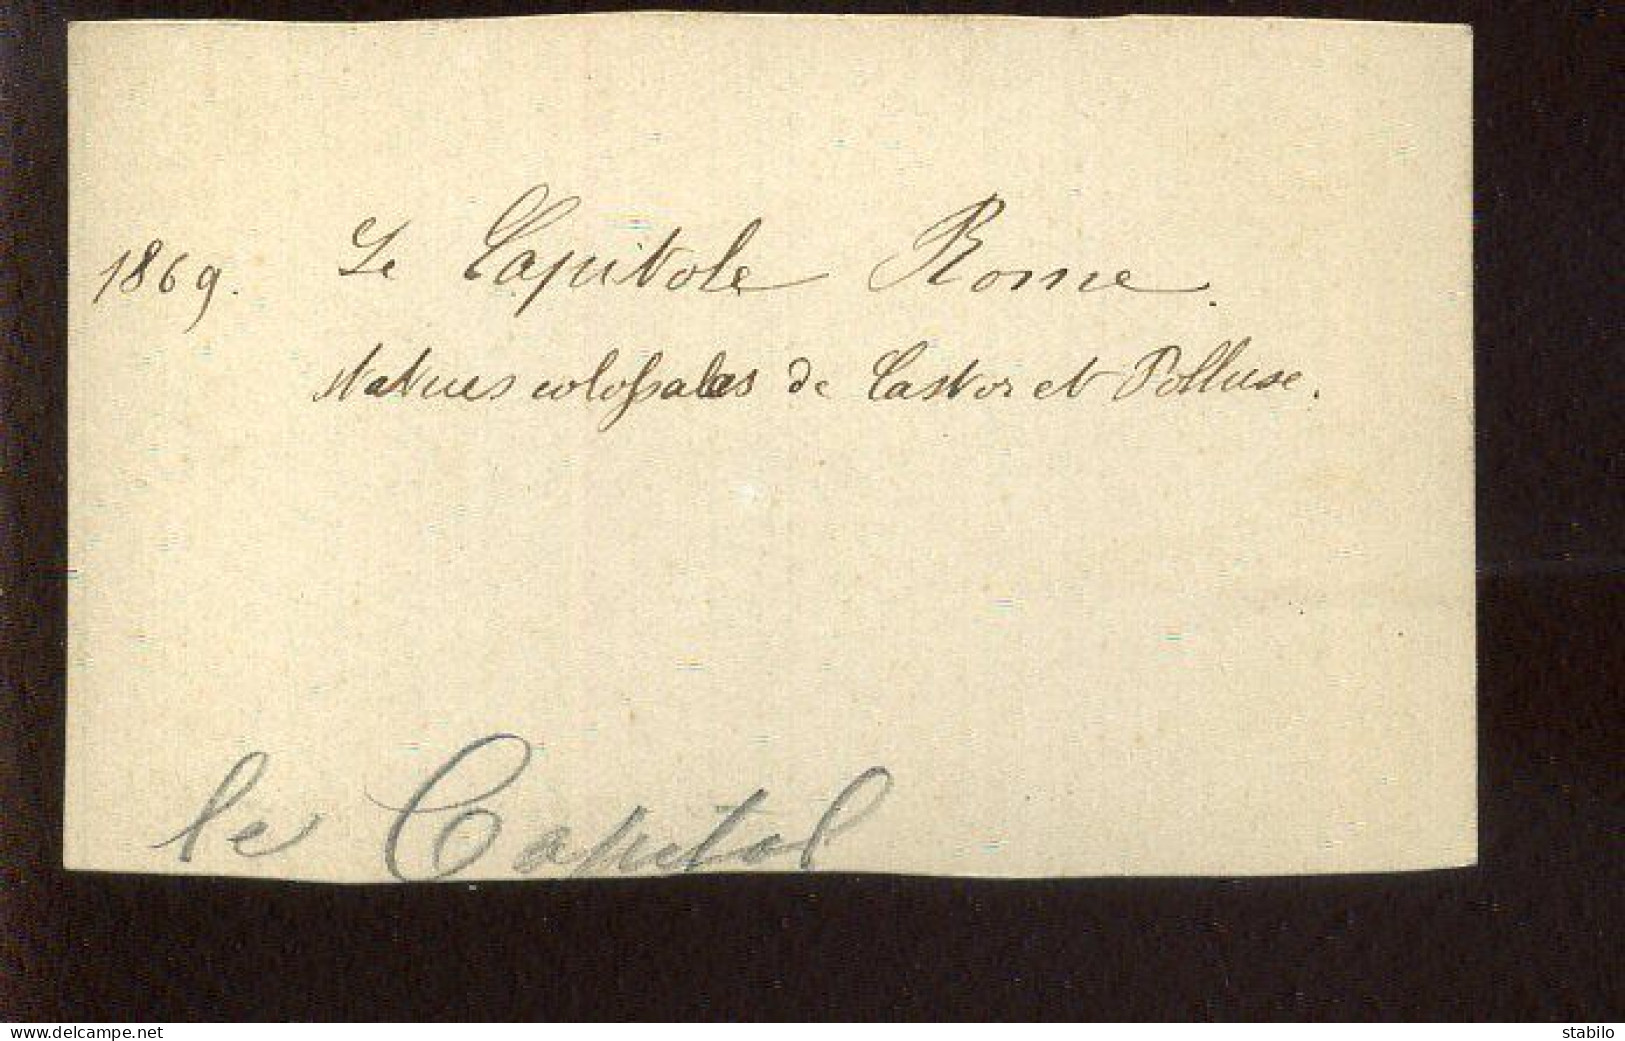 1869. Le Capitole Rome.
statues colossales de Castor et Polluxe.
le Capitol
www.delcampe.net
stabilo